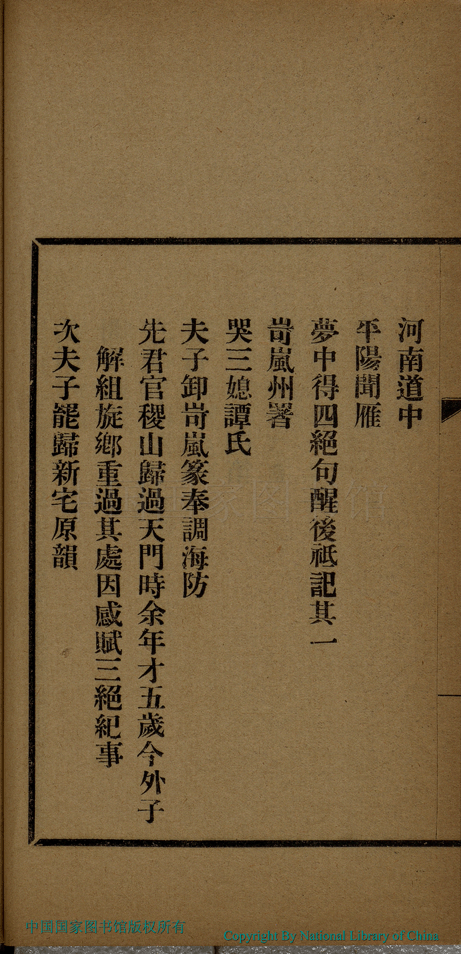 河南道中
平陽聞雁
夢中得四絕句醒後祗記其一
岢嵐州署
哭三媳譚氏
夫子卸岢嵐篆奉調海防
先君官稷山歸過天門時余年才五歲今外子
解組旋鄉重過其處因感賦三絕紀事
次夫子罷歸新宅原韻
中国国家图书馆版权所有
Copyright By National Library of China